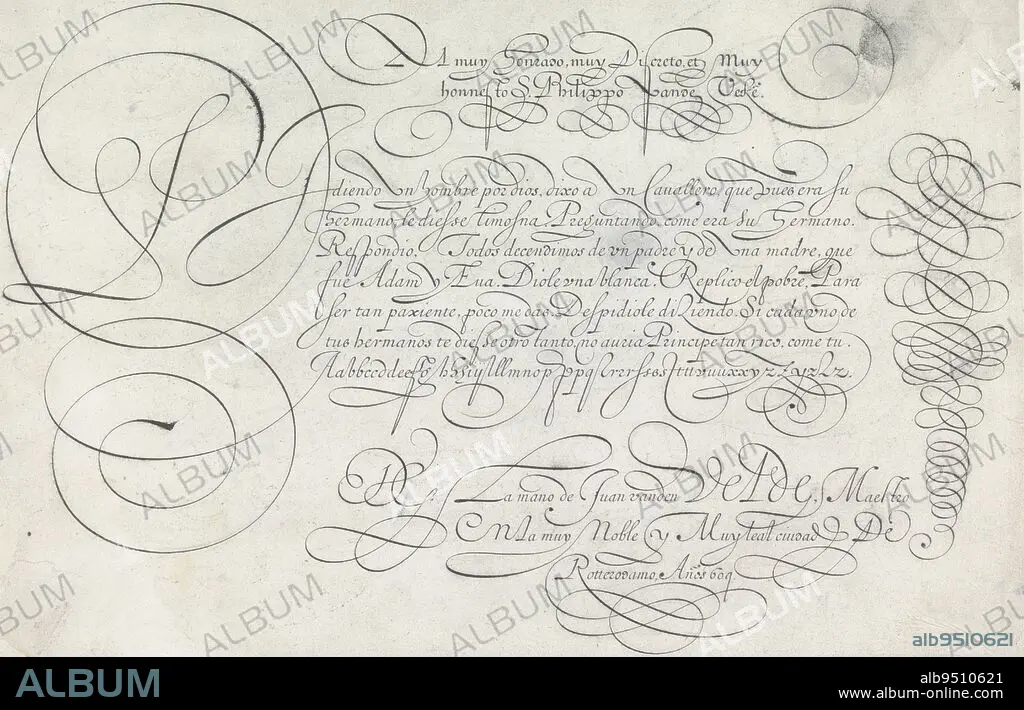 Al muy honrado, muy Discreto, et Muy
honnesto S. Philippo vande
Pidiendo Un hombre por dios, dixo a Un Cavallero, que pues era su
hermano, le diesse limosna. Preguntando, come era su hermano.
Respondio. Todos decendimos de vn padre y de Una madre, que
fue Adam y Eua. Diole vna blanca. Replico el pobre. Para
ser tan paxiente, poco me das. Despidiole diziendo. Si cada vno de
tus hermanos te diesse otro tanto, no auria Principe tan rico, come tu.
De La mano de Juan vanden Velde, Maestro
En la muy Noble y Muy leal ciudad De
Rotterodamo, Año 1609.
ALBUM
alb9510621
alb9510621
www.album-online.com